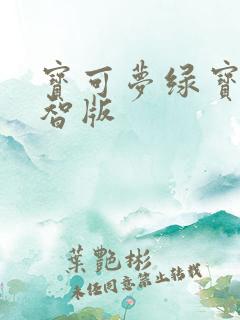 寶可夢绿寶
智版
葉艷彬
未经同意禁止转载